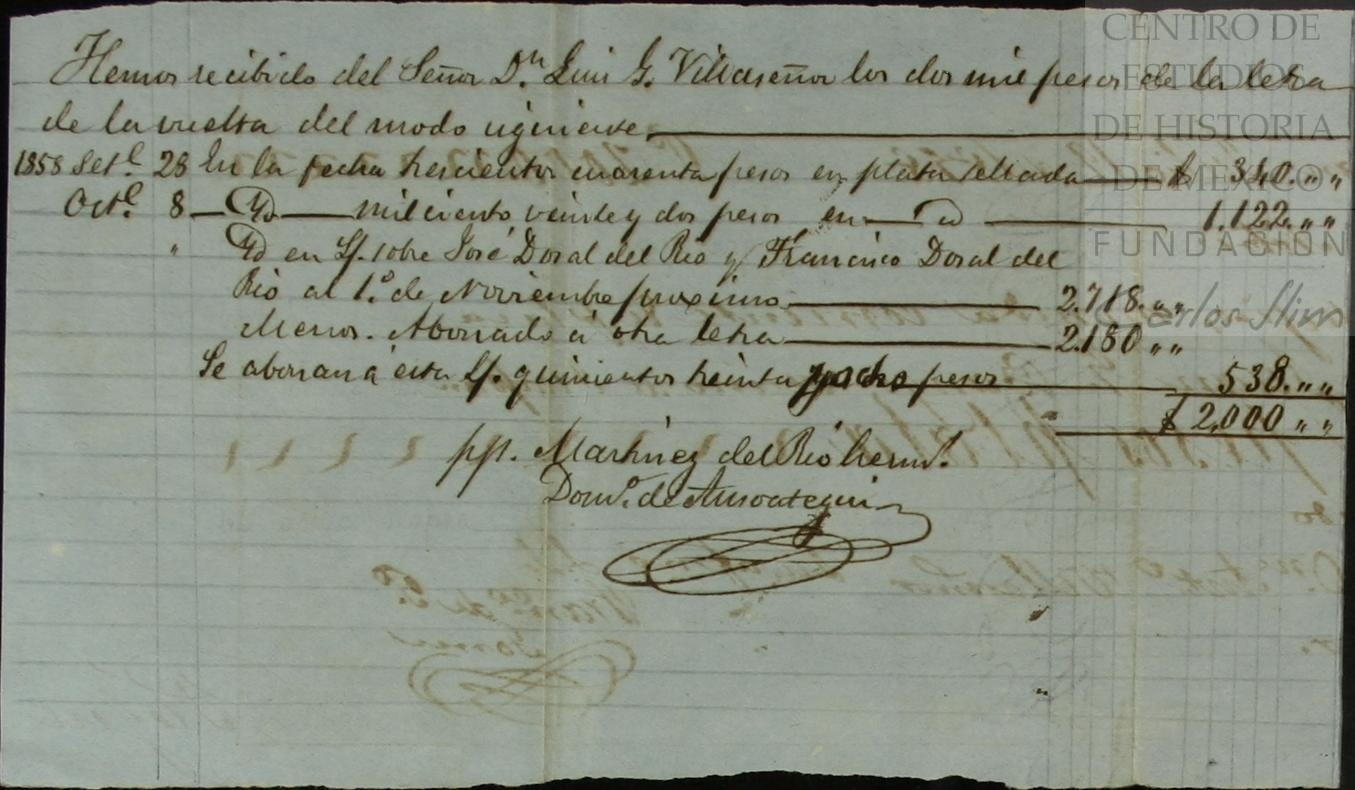 CENTRO DE
ESTUDIOS
DE HISTORIA
DE MEXICO
FUNDACIÓN
Carlos Slim
Hemos recibido del Señor Dn. Luis G. Villaseñor los dos mil pesos de la letra
de la vuelta del modo siguiente.
1858 Set.e 28 En la fecha trescientos cuarenta pesos en plata sellada $ 340. „ „
Oct.e 8 Yd mil ciento veinte y dos pesos en Yd 1.122. „ „
„ Yd en Lf. sobre José Dosal del Rio y Francisco Dosal del
Rio al 1.o de Noviembre proximo 2.718. „ „
Menos. Abonado á otra letra 2.180 „ „
Se abonan á esta Lf. quinientos treinta y ocho pesos 538. „ „
$ 2,000 „ „
pp. Martinez del Rio herm.s
Dom.o de Ansoategui